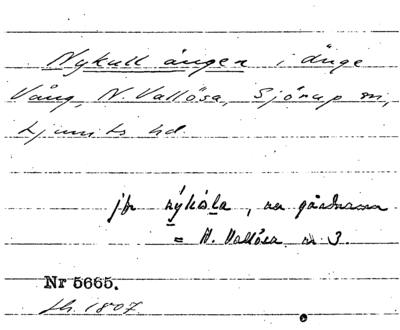 Nykull ängen i änge
Vång, N. Vallösa, Sjörup sn,
Ljunits hd.
jfr nýkúla, na gårdarna
= N. Vallösa nr 3.
Nr 5665.
sk. 1807